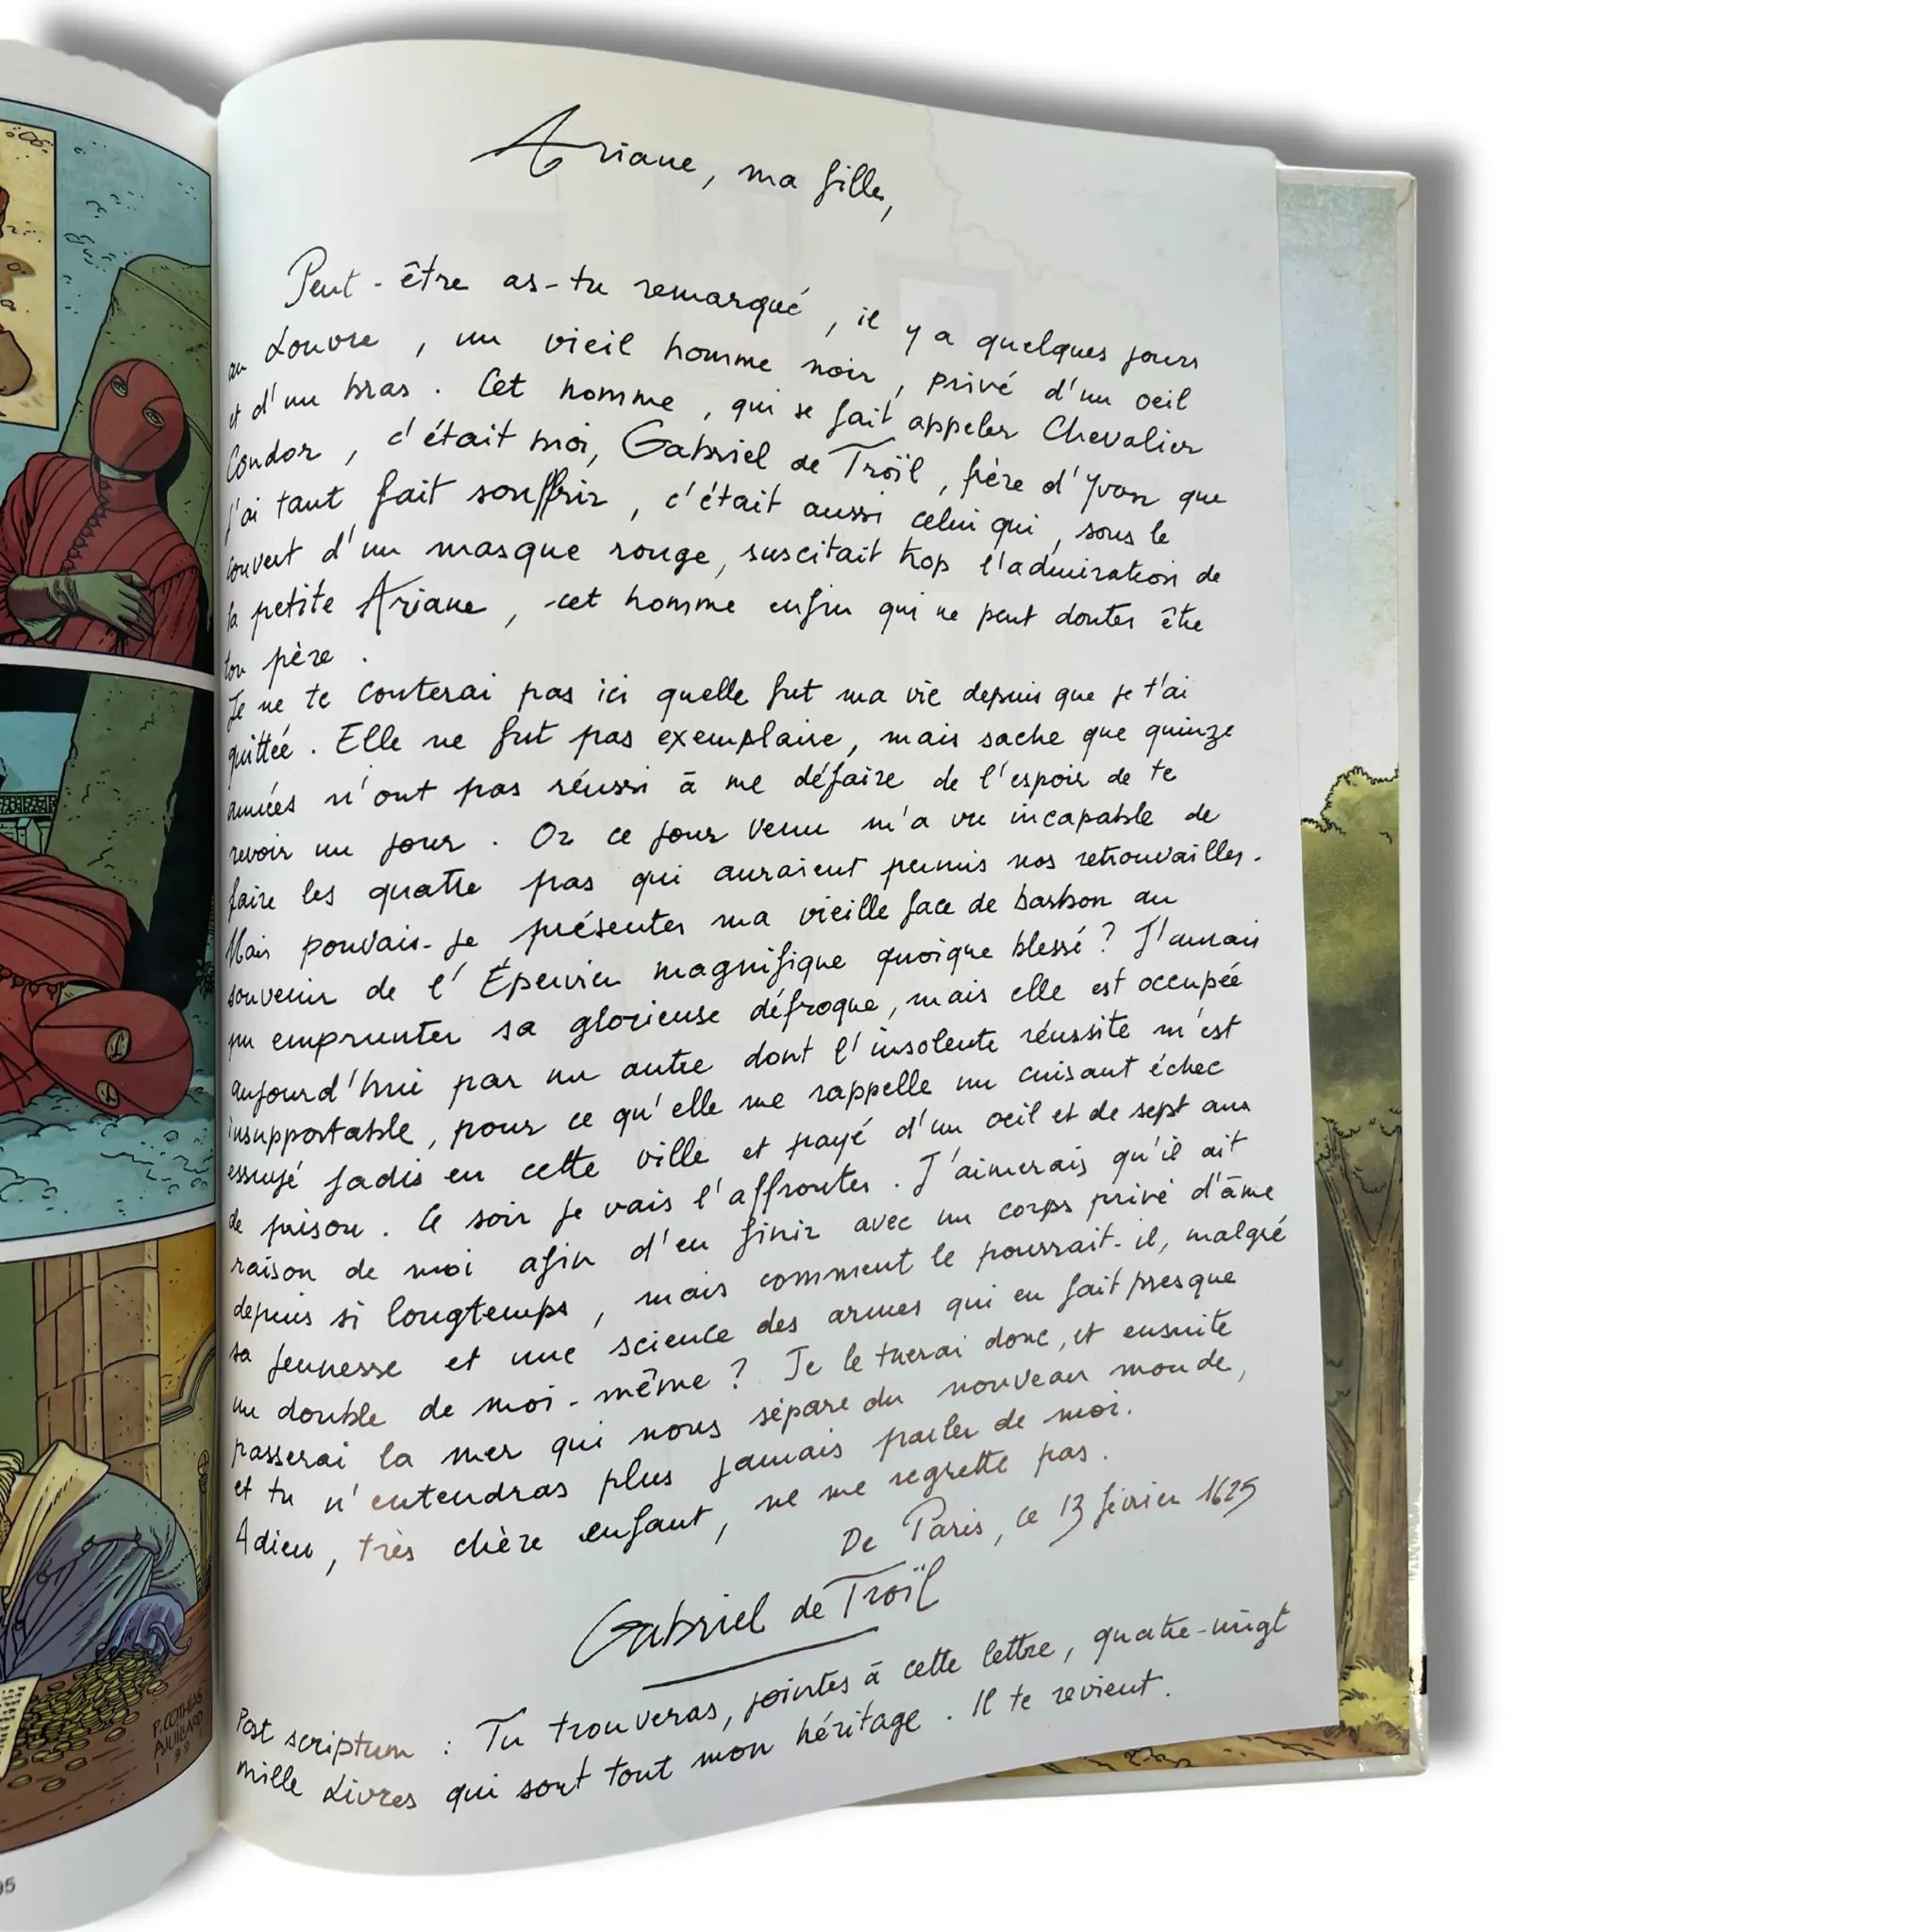 Ariane, ma fille,
Peut-être as-tu remarqué, il y a quelques jours
au Louvre, un vieil homme noir, privé d'un oeil
et d'un bras. Cet homme, qui se fait appeler Chevalier
Condor, c'était moi, Gabriel de Troïl, frère d'Yvon que
j'ai tant fait souffrir, c'était aussi celui qui, sous le
couvert d'un masque rouge, suscitait trop l'admiration de
la petite Ariane, cet homme enfin qui ne peut douter être
ton père.
Je ne te conterai pas ici quelle fut ma vie depuis que je t'ai
quittée. Elle ne fut pas exemplaire, mais sache que quinze
années n'ont pas réussi à me défaire de l'espoir de te
revoir un jour. Or ce jour venu m'a vu incapable de
faire les quatre pas qui auraient permis nos retrouvailles.
Mais pouvais-je présenter ma vieille face de barbon au
souvenir de l'Épervier magnifique quoique blessé ? J'aurais
pu emprunter sa glorieuse défroque, mais elle est occupée
aujourd'hui par un autre dont l'insolente réussite m'est
insupportable, pour ce qu'elle me rappelle un cuisant échec
essuyé jadis en cette ville et payé d'un oeil et de sept ans
de prison. Ce soir je vais l'affronter. J'aimerais qu'il ait
raison de moi afin d'en finir avec un corps privé d'âme
depuis si longtemps, mais comment le pourrait-il, malgré
sa jeunesse et une science des armes qui en fait presque
un double de moi-même ? Je le tuerai donc, et ensuite
passerai la mer qui nous sépare du nouveau monde,
et tu n'entendras plus jamais parler de moi.
Adieu, très chère enfant, ne me regrette pas.
De Paris, ce 13 février 1625
Gabriel de Troïl
Post scriptum : Tu trouveras, jointes à cette lettre, quatre-vingt
mille Livres qui sont tout mon héritage. Il te revient.
P. COTHIAS
A. JUILLARD
95